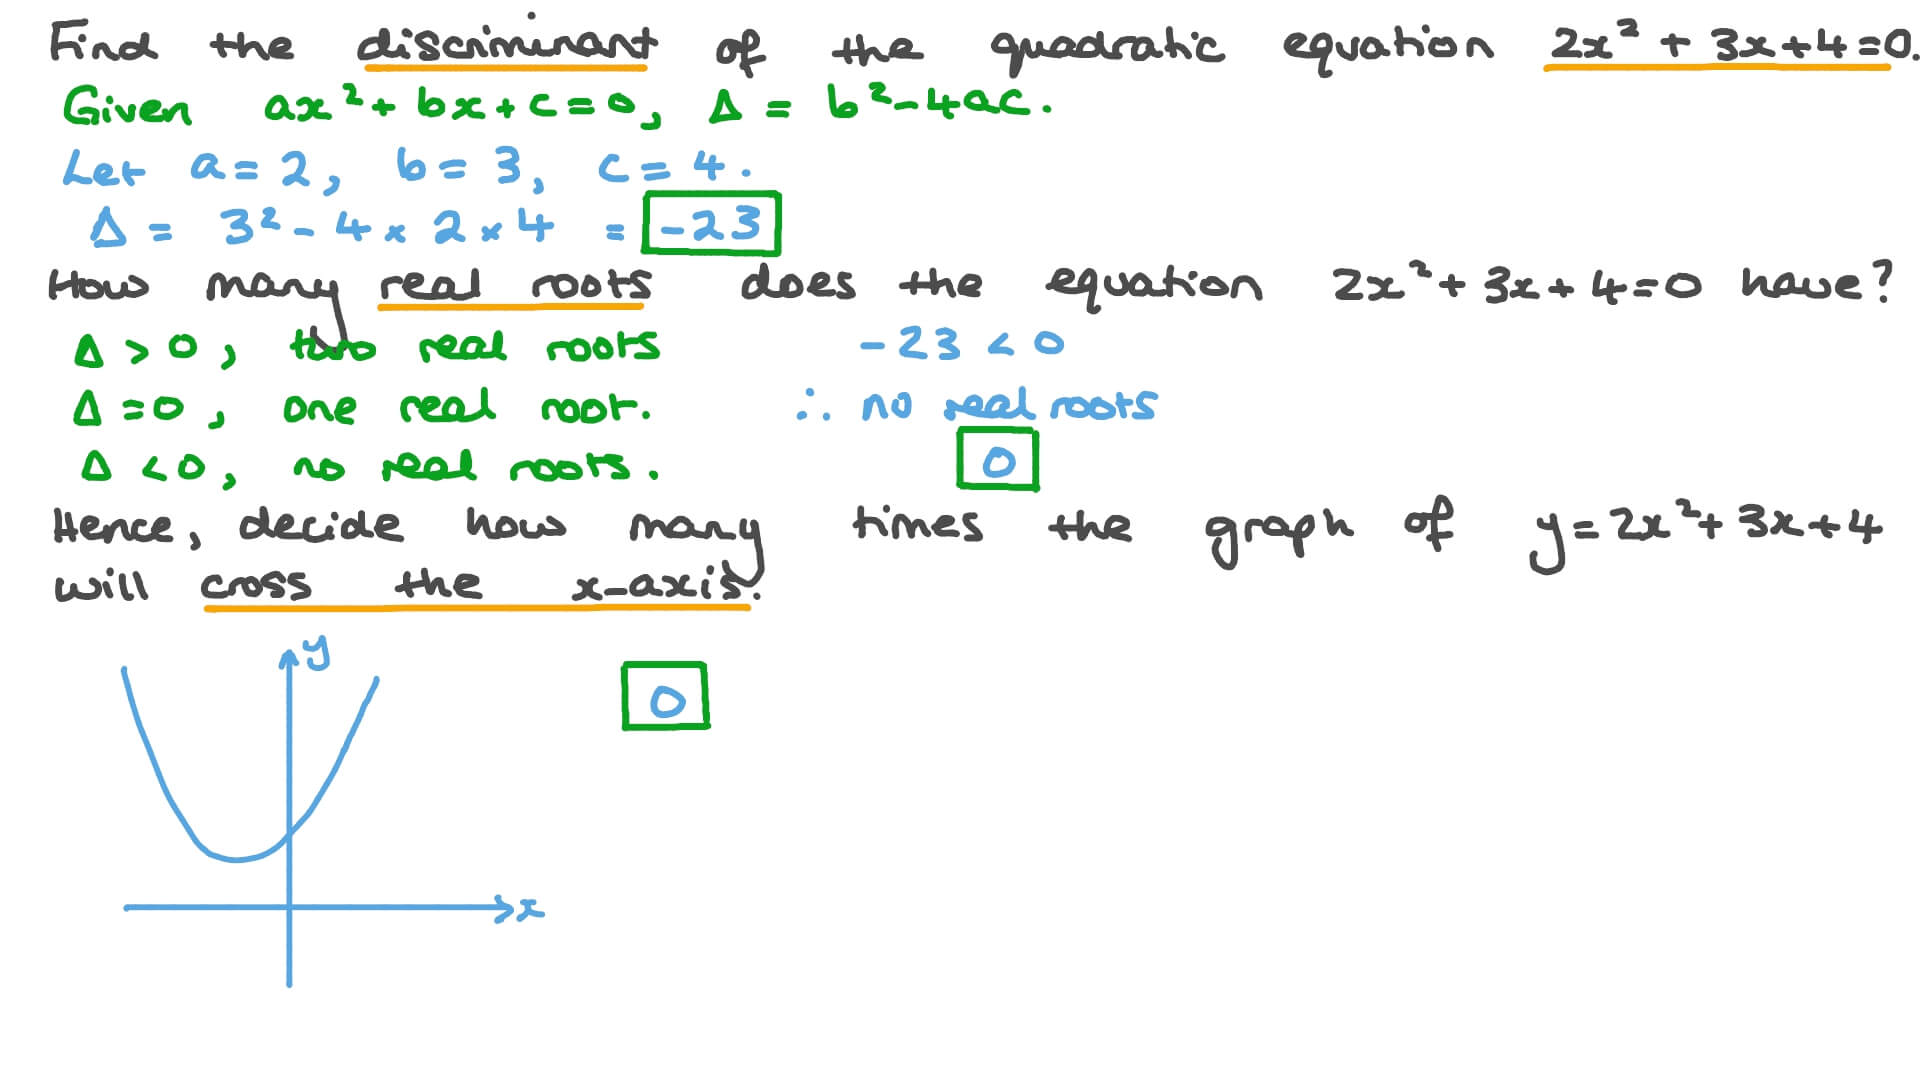 Find the discriminant of the quadratic equation 2x² + 3x + 4 = 0.
Given ax² + bx + c = 0, Δ = b² - 4ac.
Let a = 2, b = 3, c = 4.
Δ = 3² - 4 × 2 × 4 = -23
How many real roots does the equation 2x² + 3x + 4 = 0 have?
Δ > 0, two real roots
-23 < 0
Δ = 0, one real root.
∴ no real roots
Δ < 0, no real roots.
0
Hence, decide how many times the graph of y = 2x² + 3x + 4
will cross the x-axis.
y
0
x